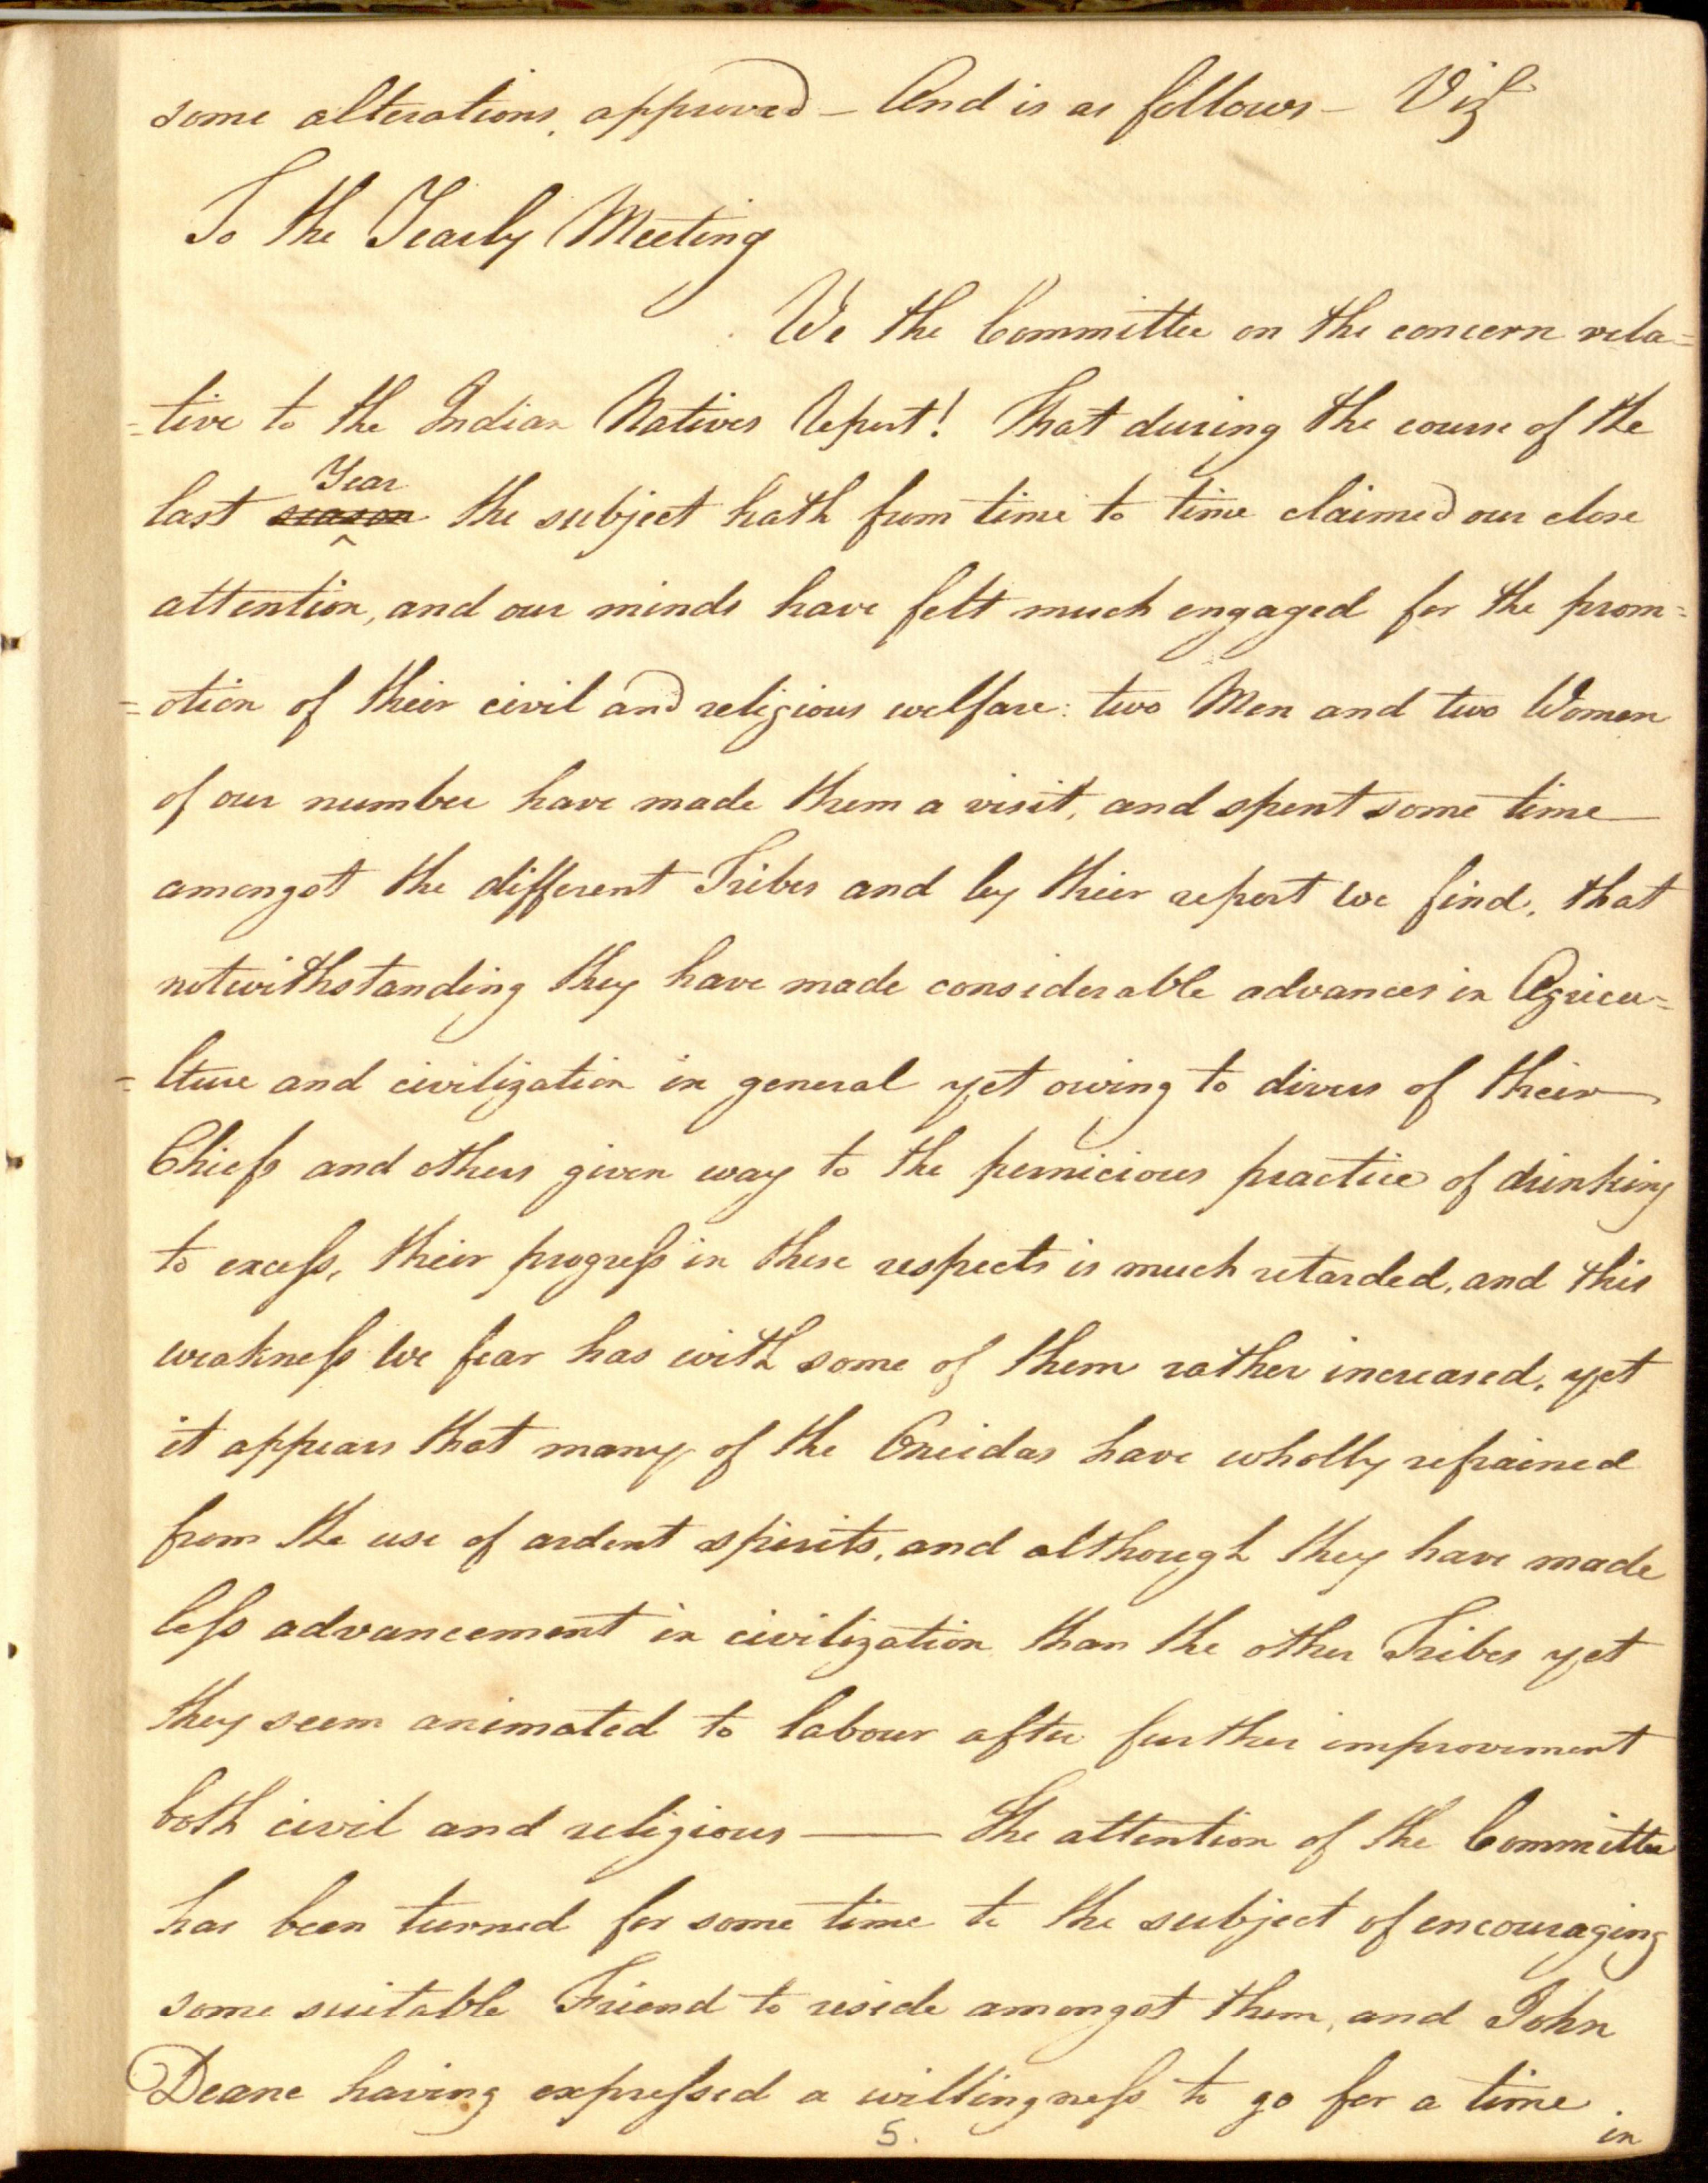 some alterations, approved – And is as follows – Viz
To the Yearly Meeting
We the Committee on the concern rela=
=tive to the Indian Natives Report! That during the course of the
Year
last season the subject hath from time to time claimed our close
^
attention, and our minds have felt much engaged for the prom=
=otion of their civil and religious welfare: two Men and two Women
of our number have made them a visit, and spent some time
amongst the different Tribes and by their report we find, that
notwithstanding they have made considerable advances in Agricu=
=lture and civilization in general yet owing to divers of their
Chiefs and others given way to the pernicious practice of drinking
to excess, their progress in these respects is much retarded, and this
weakness we fear has with some of them rather increased, yet
it appears that many of the Oneidas have wholly refrained
from the use of ardent spirits, and although they have made
less advancement in civilization than the other Tribes yet
they seem animated to labour after further improvement
both civil and religious —— The attention of the Committee
has been turned for some time to the subject of encouraging
some suitable Friend to reside amongst them, and John
Deane having expressed a willingness to go for a time
5.
in